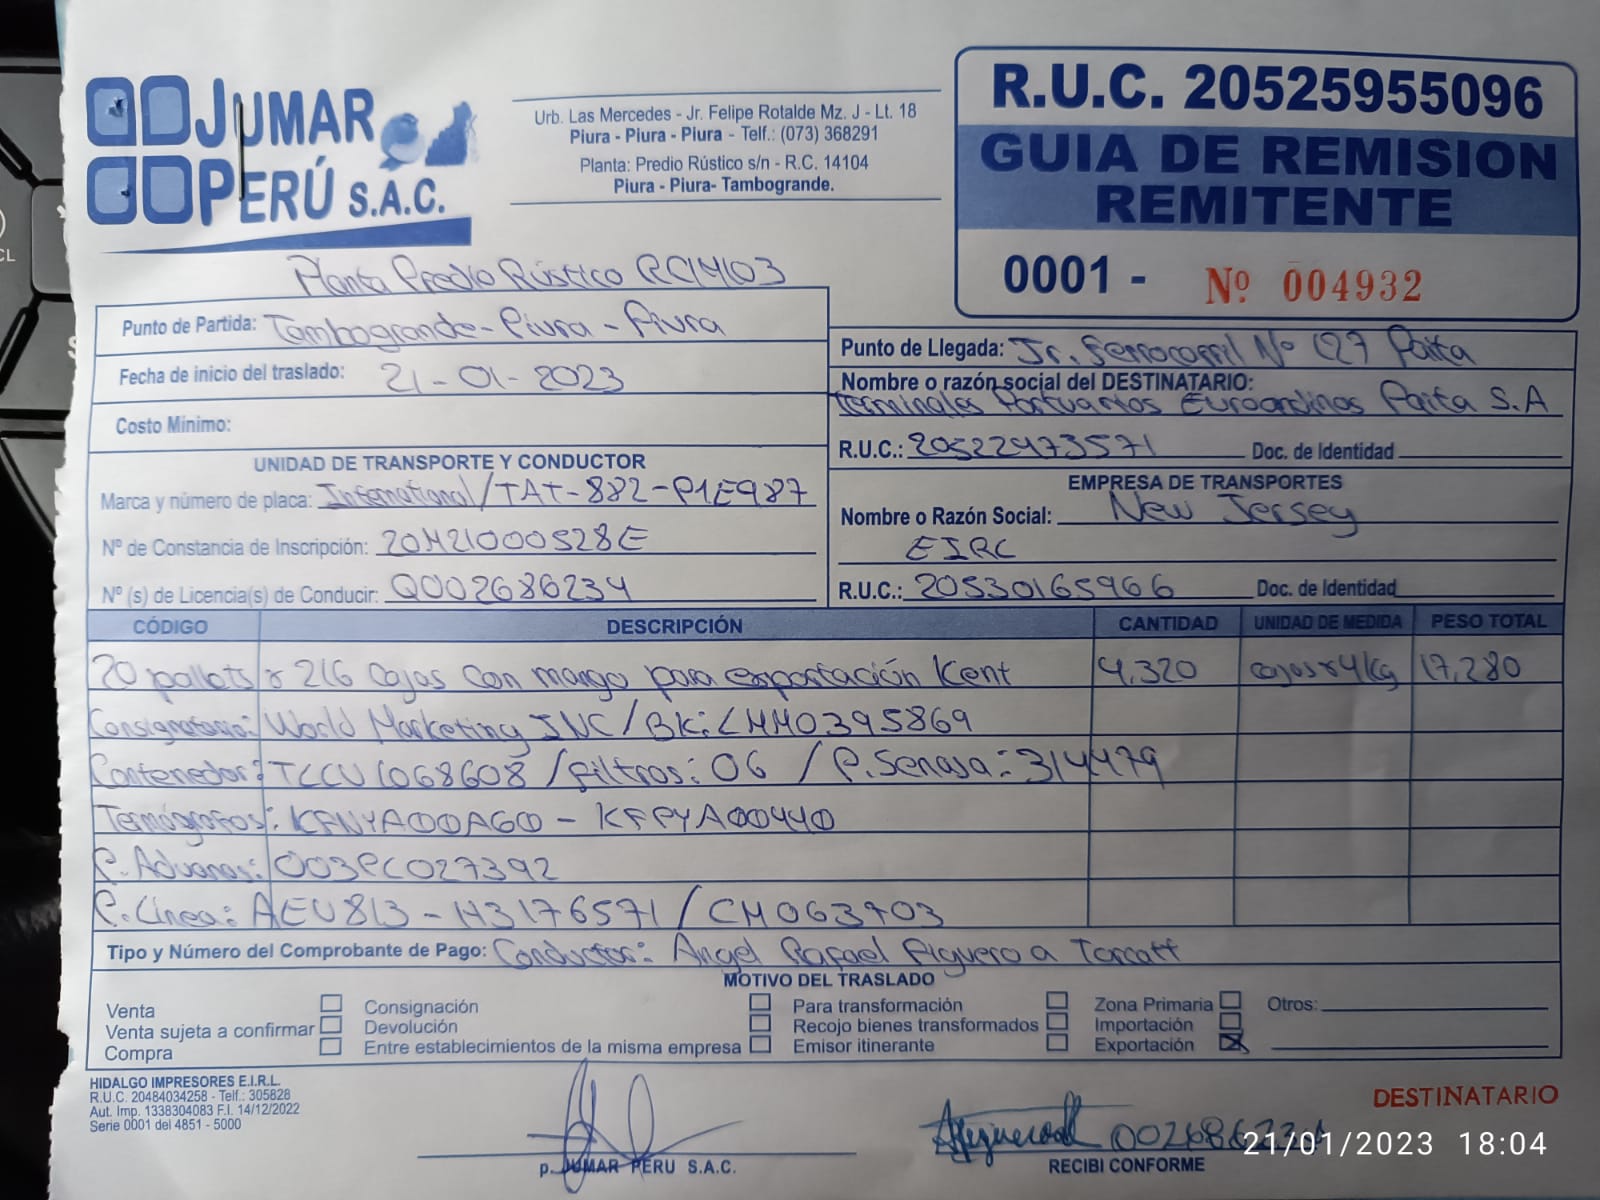 JUMAR PERÚ S.A.C.
Urb. Las Mercedes - Jr. Felipe Rotalde Mz. J - Lt. 18
Piura - Piura - Piura - Telf.: (073) 368291
Planta: Predio Rústico s/n - R.C. 14104
Piura - Piura- Tambogrande.
R.U.C. 20525955096
GUIA DE REMISION
REMITENTE
0001 - Nº 004932
Planta Predio Rústico RC14103
Punto de Partida: Tambogrande - Piura - Piura
Fecha de inicio del traslado: 21-01-2023
Costo Mínimo:
UNIDAD DE TRANSPORTE Y CONDUCTOR
Marca y número de placa: International/TAT-882-P1E987
Nº de Constancia de Inscripción: 20M21000528E
Nº (s) de Licencia(s) de Conducir: Q002686234
Punto de Llegada: Jr. Ferrocarril Nº 127 Paita
Nombre o razón social del DESTINATARIO:
Terminales Portuarios Euroandinos Paita S.A
R.U.C.: 20522473571 Doc. de Identidad
EMPRESA DE TRANSPORTES
Nombre o Razón Social: New Jersey
EIRL
R.U.C.: 20530165966 Doc. de Identidad
CÓDIGO DESCRIPCIÓN CANTIDAD UNIDAD DE MEDIDA PESO TOTAL
20 pallets x 216 Cajas Con mango para exportación Kent 4,320 cajas x 4kg 17,280
Consignatario: World Marketing INC/BK: LMM0395869
Contenedor: TCCU1068608 / filtros: 06 / P. Senasa: 314479
Termógrafos: KFNYA00AG0 - KFPYA00440
P. Aduanas: 003PC027392
P. Línea: AEU813 - H3176571 / CM063903
Tipo y Número del Comprobante de Pago: Conductor: Angel Rafael Figueroa
MOTIVO DEL TRASLADO
Venta Consignación Para transformación Zona Primaria Otros:
Venta sujeta a confirmar Devolución Recojo bienes transformados Importación
Compra Entre establecimientos de la misma empresa Emisor itinerante Exportación X
HIDALGO IMPRESORES E.I.R.L.
R.U.C. 20484034258 - Telf.: 305828
Aut. Imp. 1338304083 F.I. 14/12/2022
Serie 0001 del 4851 - 5000
DESTINATARIO
p. JUMAR PERU S.A.C.
RECIBI CONFORME
21/01/2023 18:04